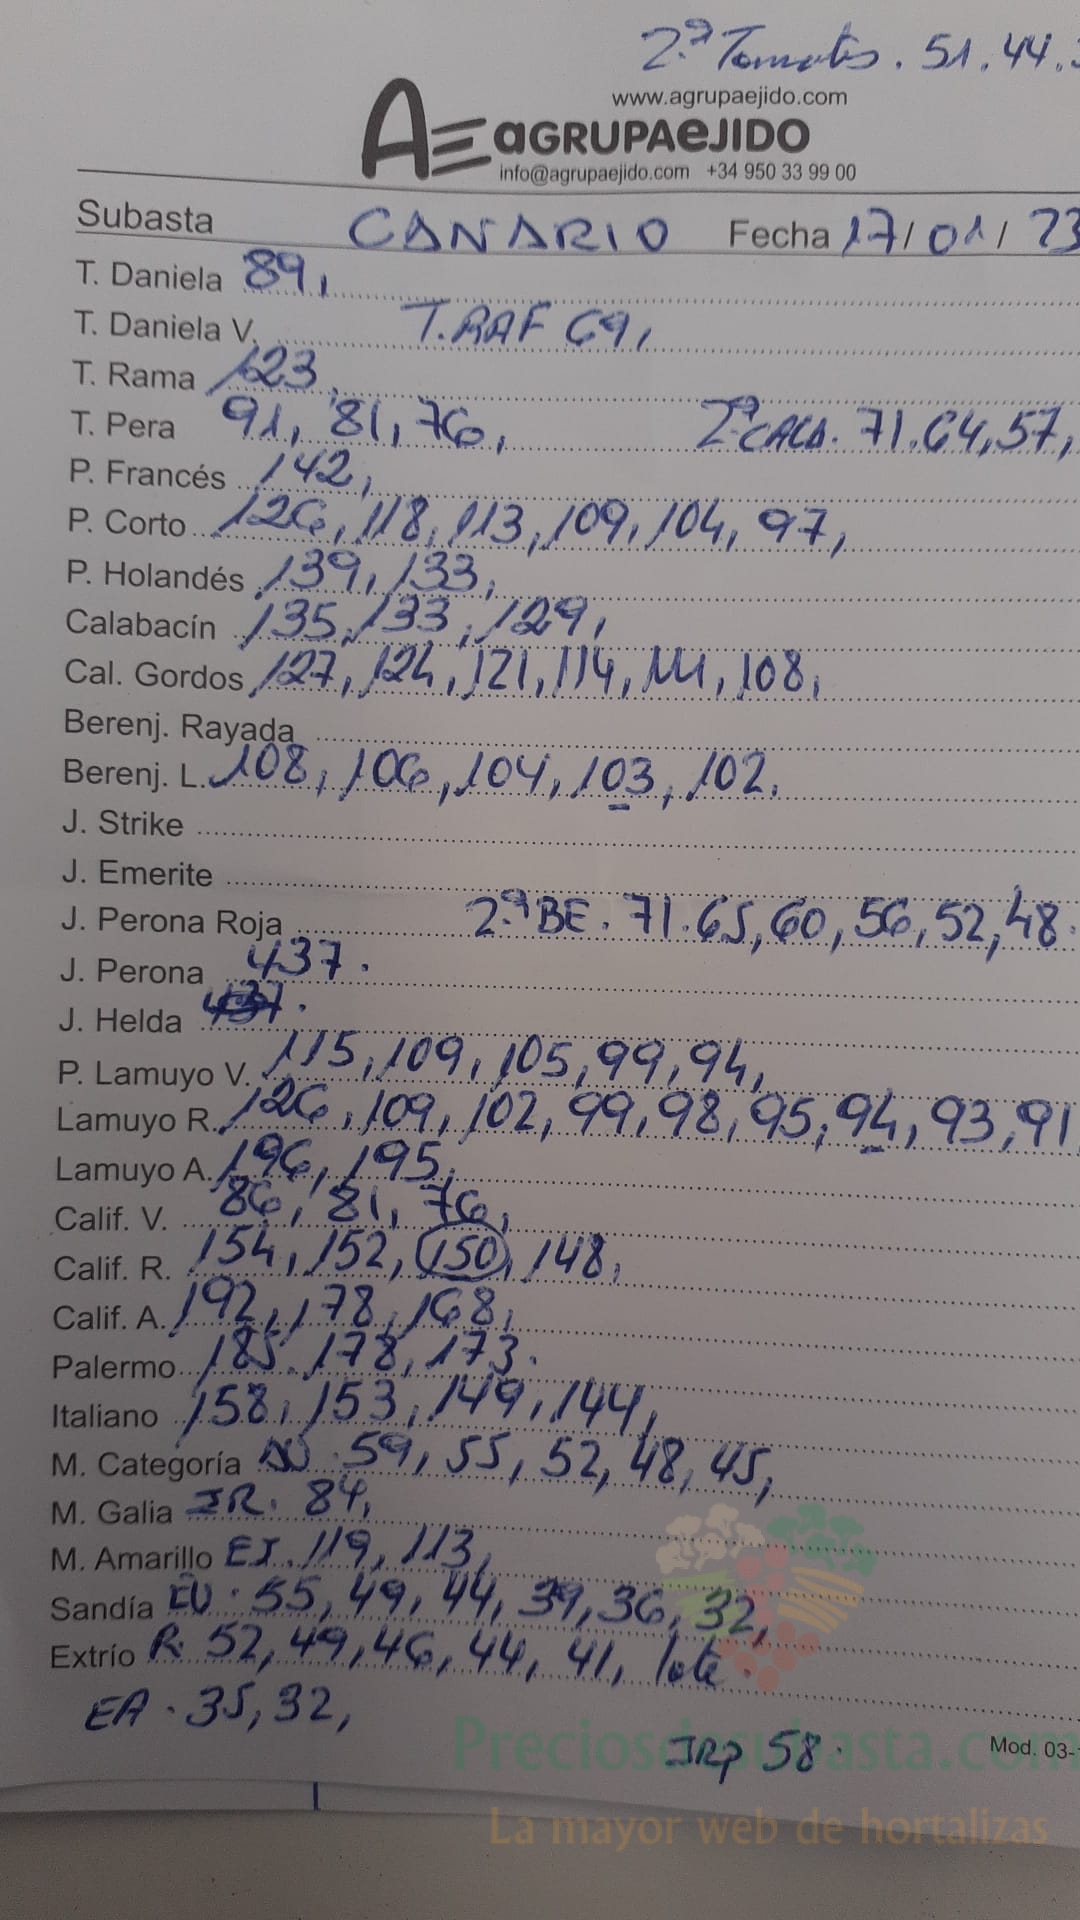 2ª Tomates. 51.44.
www.agrupaejido.com
AE aGRUPAeJIDO
info@agrupaejido.com +34 950 33 99 00
Subasta CANARIO Fecha 17/01/23
T. Daniela 89,
T. Daniela V. T.RAF 69,
T. Rama 123,
T. Pera 91, 81, 76, 2ª CALA. 71.64,57,
P. Francés 142,
P. Corto 126, 118, 113, 109, 104, 97,
P. Holandés 139, 133,
Calabacín 135, 133, 129,
Cal. Gordos 127, 124, 121, 114, 111, 108,
Berenj. Rayada
Berenj. L. 108, 106, 104, 103, 102.
J. Strike
J. Emerite
J. Perona Roja 2ª BE. 71.65,60,56,52,48.
J. Perona 437.
J. Helda
P. Lamuyo V. 115, 109, 105, 99, 94,
Lamuyo R. 126, 109, 102, 99, 98, 95, 94, 93, 91
Lamuyo A. 196, 195,
Calif. V. 86, 81, 76,
Calif. R. 154, 152, 150, 148,
Calif. A. 192, 178, 168,
Palermo 185. 178, 173.
Italiano 158, 153, 149, 144,
M. Categoría 59, 55, 52, 48, 45,
M. Galia IR. 84,
M. Amarillo EJ. 119, 113,
Sandía EU. 55, 49, 44, 39, 36, 32,
Extrío R. 52, 49, 46, 44, 41, lote.
EA. 35, 32,
Preciosdesubasta.com
IRP 58. Mod. 03-
La mayor web de hortalizas